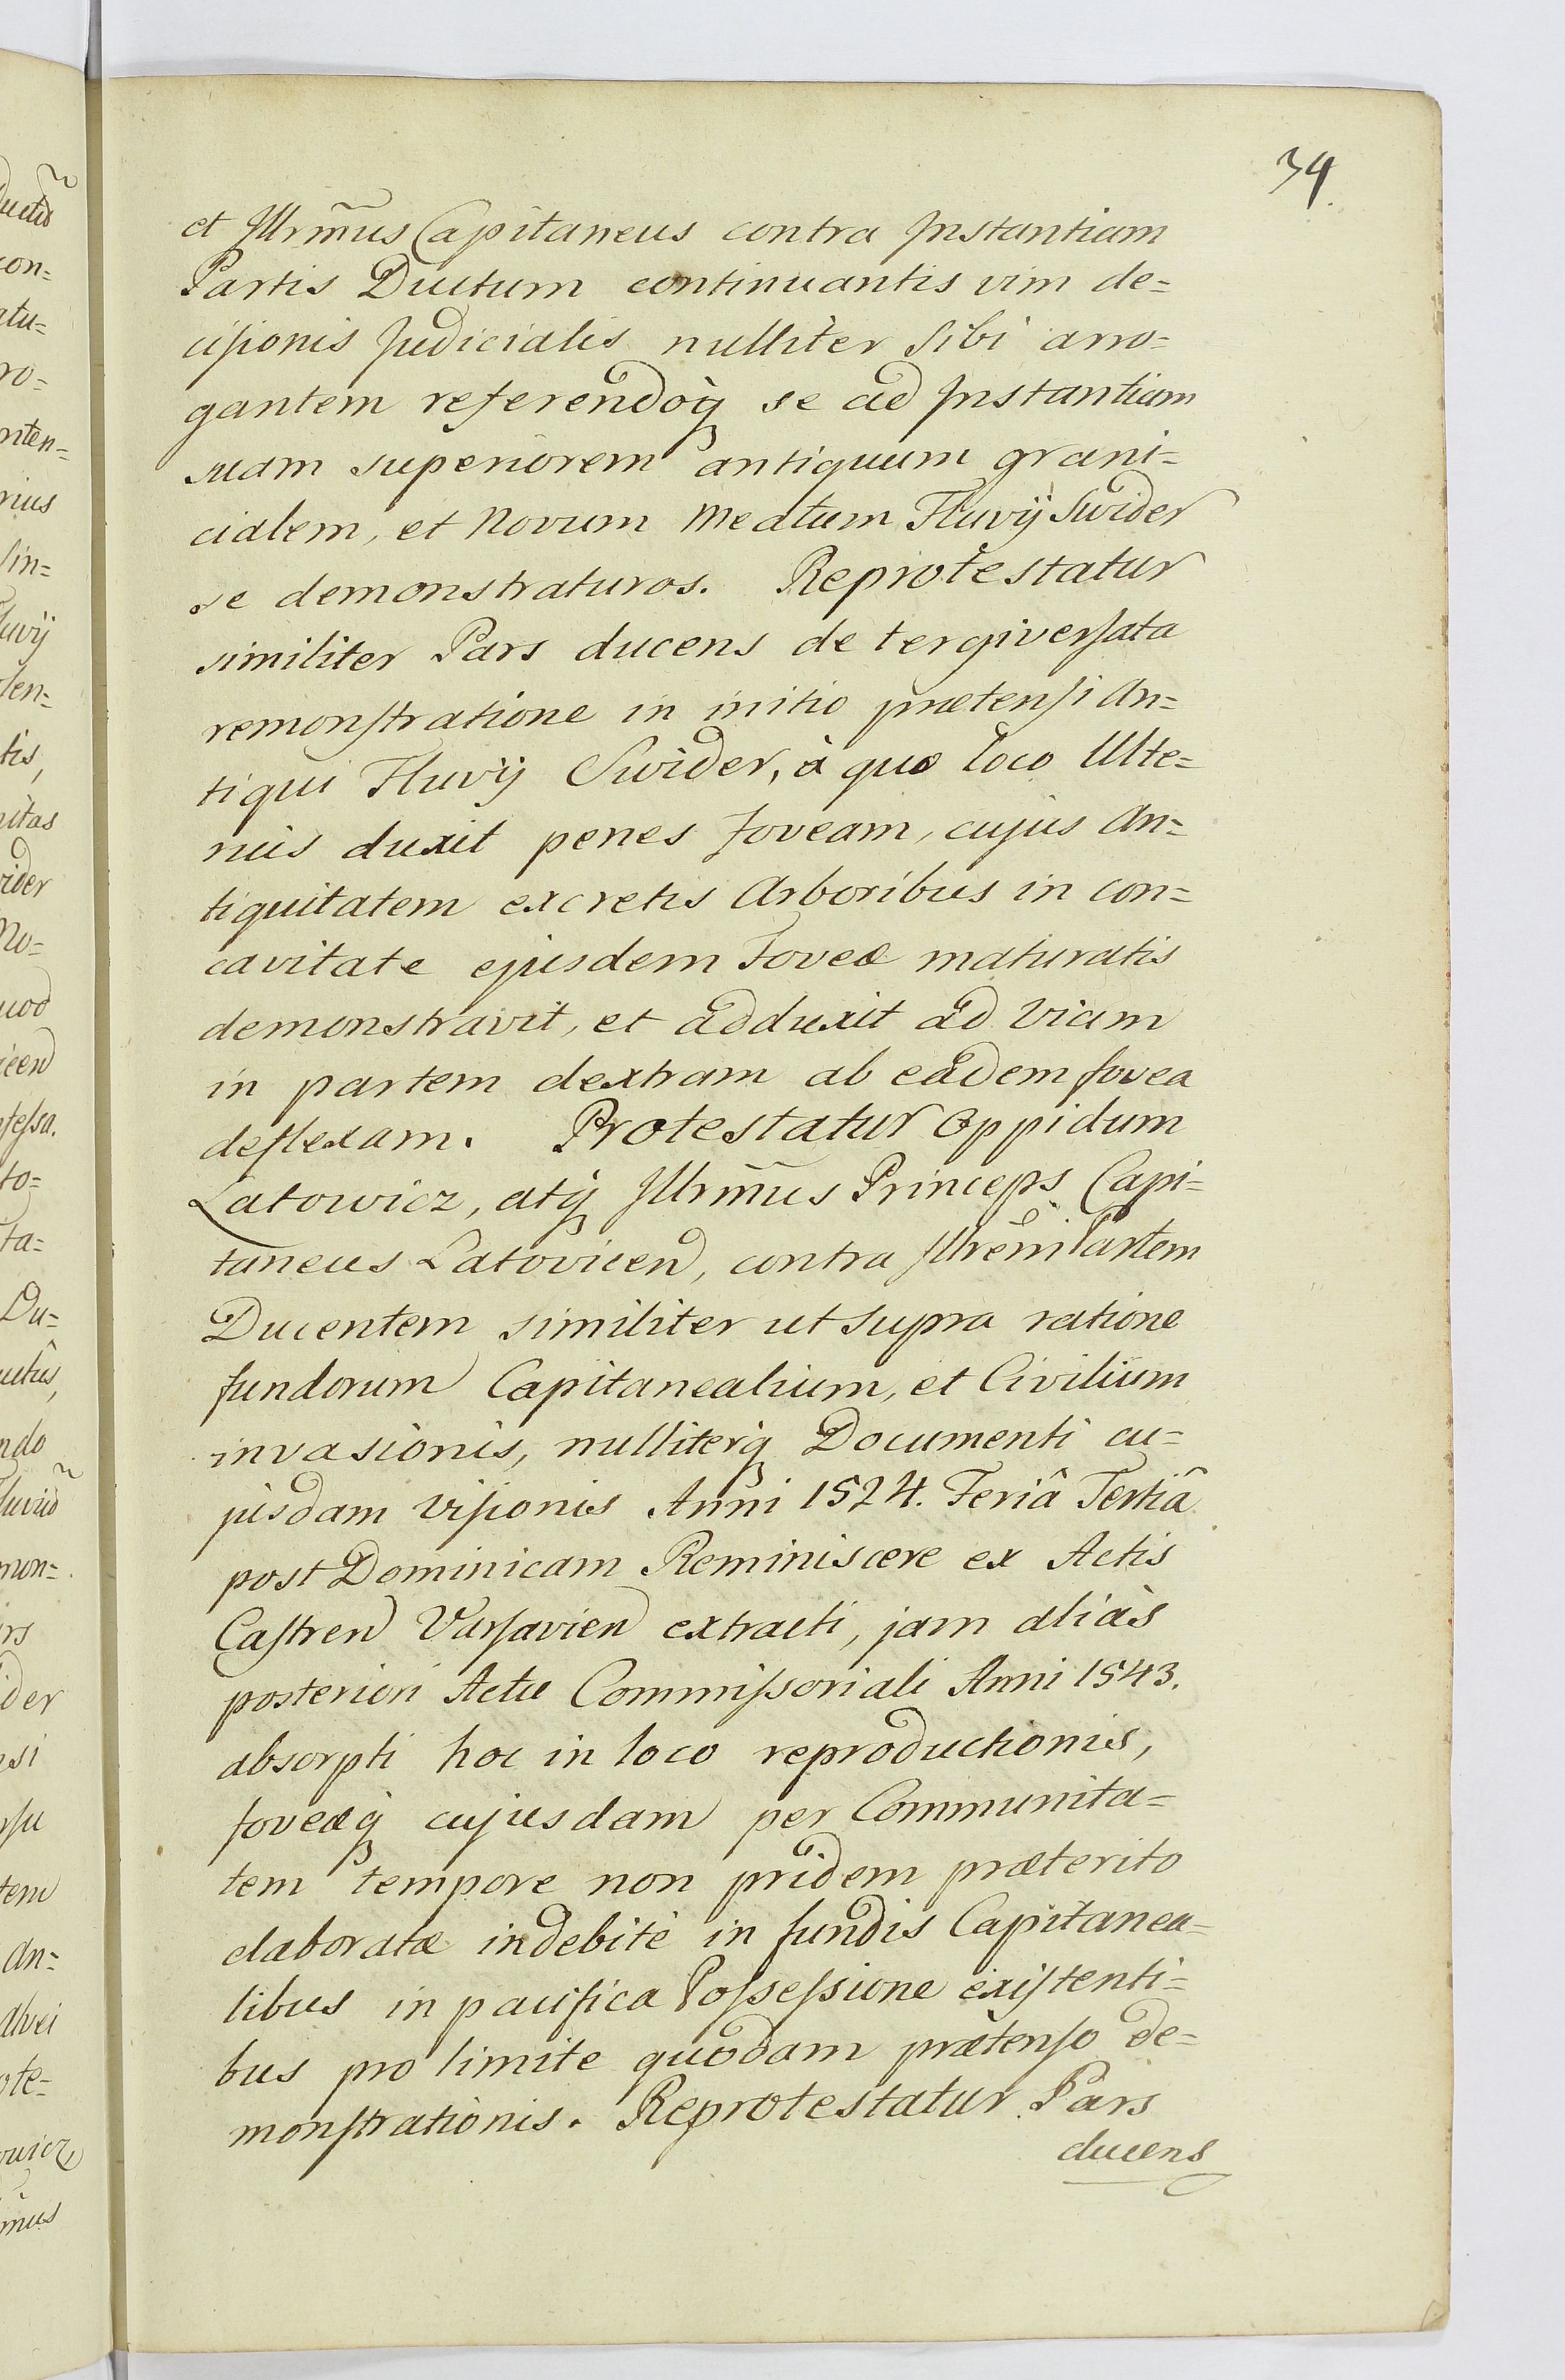 34.
et Jllrm̃us Capitaneus contra Jnstantiam
Partis Ductum continuantis vim de=
cisionis Judicialis nulliter sibi arro=
gantem referendoq́ se ad Jnstantiam
suam superiorem antiquum grani=
cialem, et Novum Meatum Fluvij Swider
se demonstraturos. Reprotestatur
similiter Pars ducens de tergiversata
remonstratione in initio prætensi An=
tiqui Fluvij Swider, à quo loco Ulte=
rius duxit penes foveam, cujus An=
tiquitatem excretis Arboribus in con=
cavitate ejusdem Foveæ maturatis
demonstravit, et adduxit ad Viam
in partem dextram ab eadem fovea
deflexam. Protestatur Oppidum
Latowicz, atq́ Jllrm̃us Princeps Capi=
taneus Latovicen, contra Jllrem̃ Partem
Ducentem similiter ut supra ratione
fundorum Capitanealium, et Civilium
invasionis, nulliterq́ Documenti cu=
jusdam Visionis Anni 1524. Feriâ Tertiâ
post Dominicam Reminiscere ex Actis
Castren Varsavien extracti, jam aliàs
posteriori Actu Commissoriali Anni 1543.
absorpti hoc in loco reproductionis,
foveæq́ cujusdam per Communita=
tem tempore non pridem præterito
elaboratæ indebitè in fundis Capitanea=
libus in pacifica Possessione existenti=
bus pro limite quodam prætenso de=
monstrationis. Reprotestatur Pars
ducens